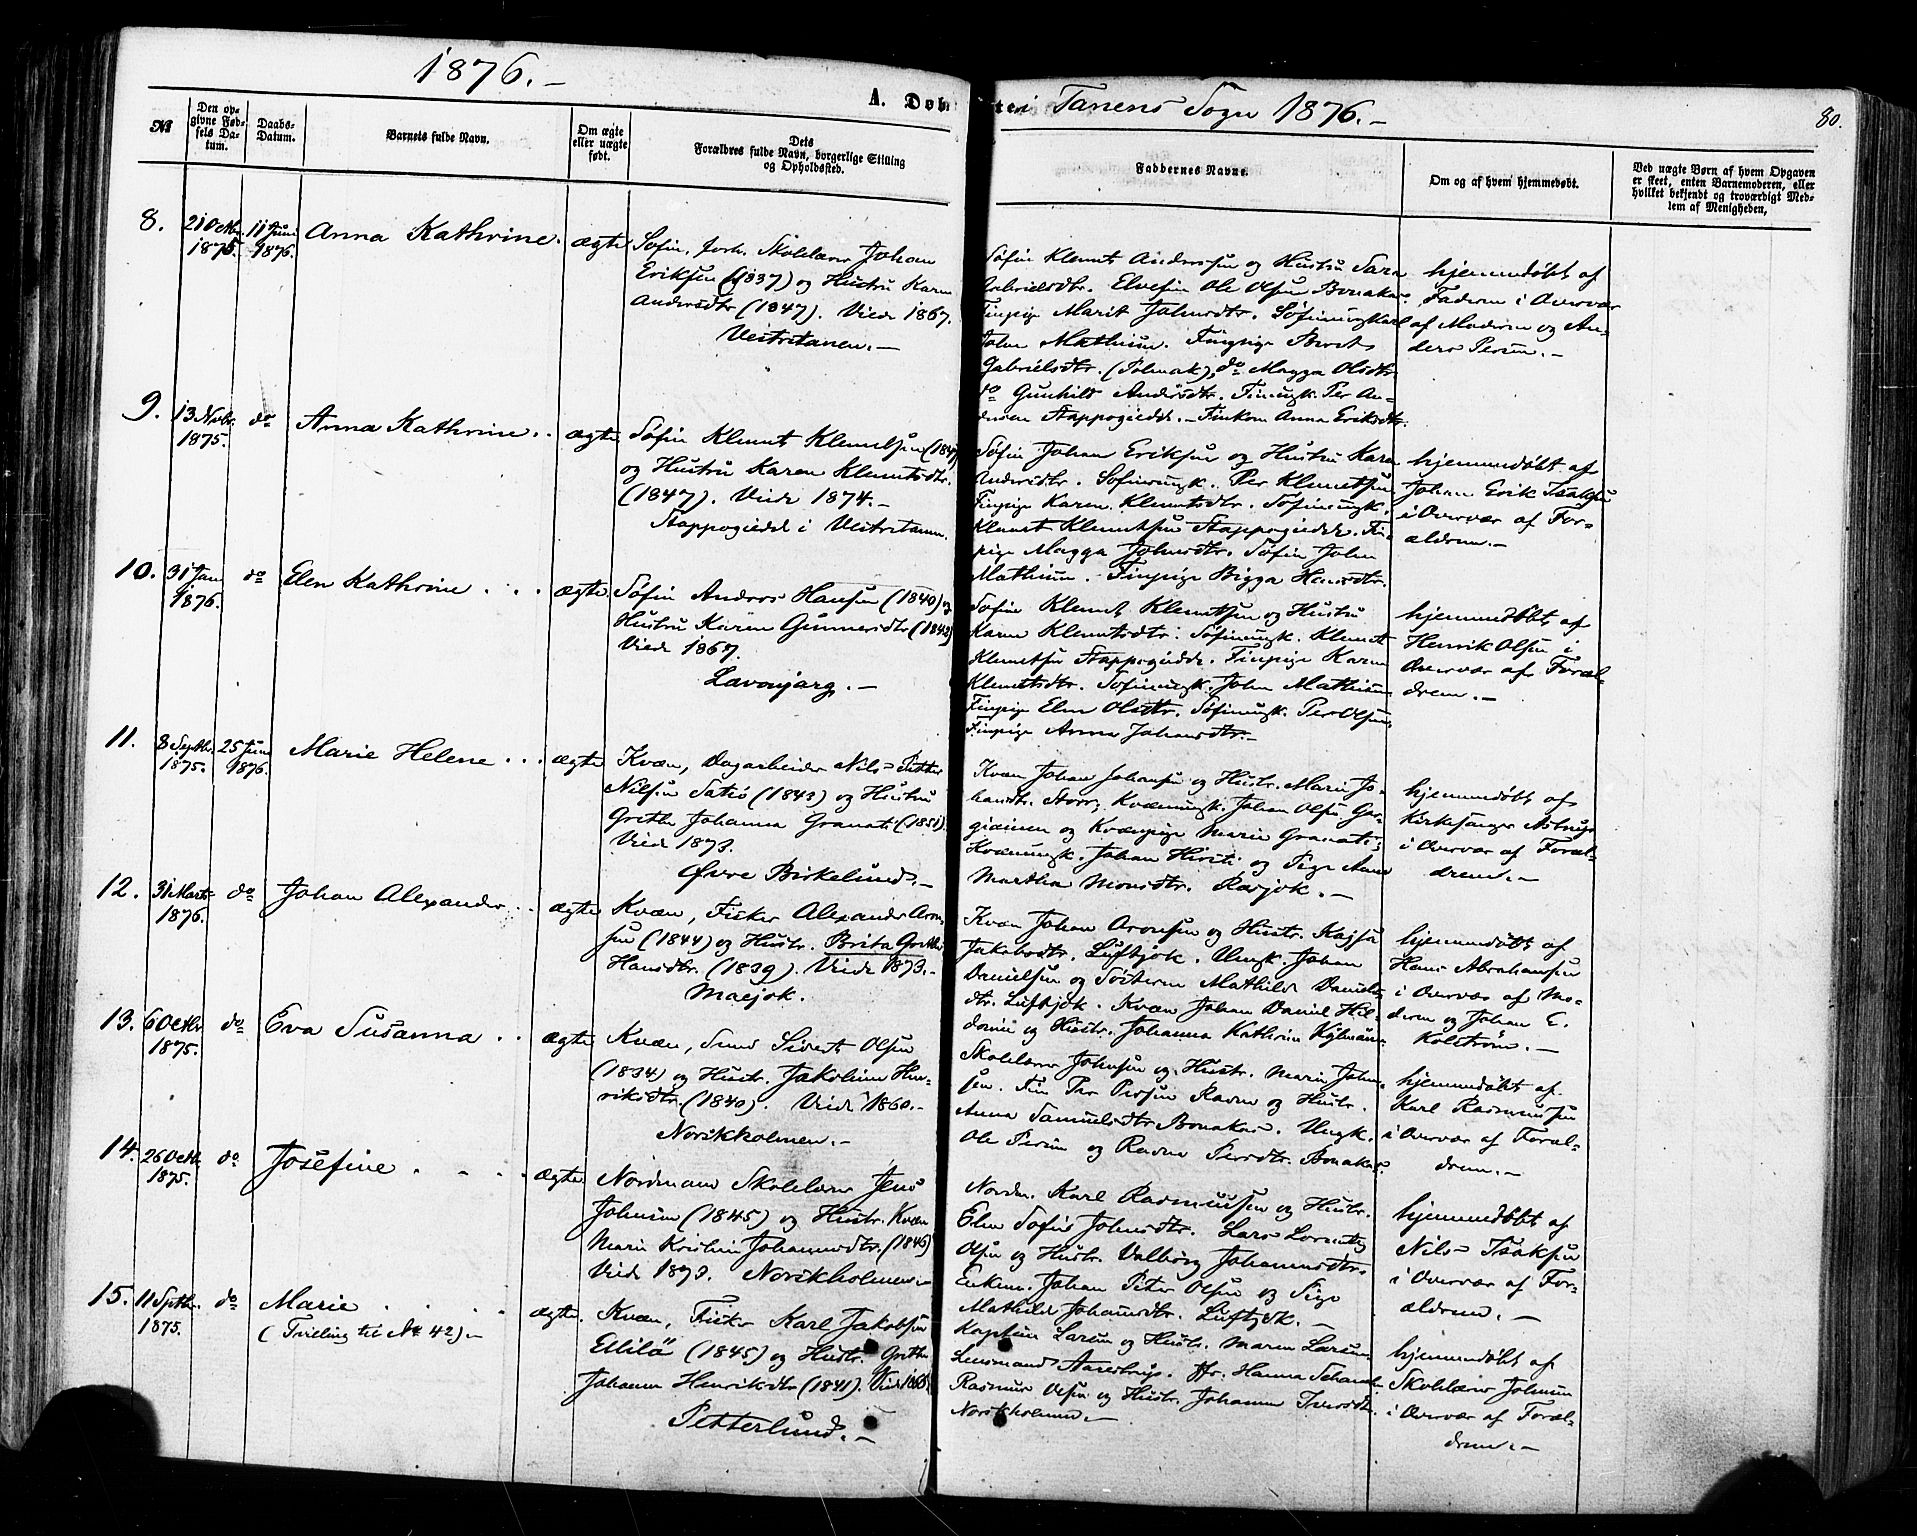 1876.-
A. Døb
te i Tanens Sogn 1876.-
80.
№
Den opgivne Fødsels Datum.
Daabs-Datum.
Barnets fulde Navn.
Om ægte eller uægte født.
Dets Forældres fulde Navn, borgerlige Stilling og Opholdssted.
Faddernes Navne.
Om og af hvem hjemmedøbt.
Ved uægte Børn af hvem Opgaven er skeet, enten Barnemoderen, eller hvilket bekjendt og troværdigt Medlem af Menigheden,
8. 21 Octbr. 1875. 11 Juni 1876. Anna Kathrine. ægte
Søfin, forh. Skolelærer Johan
Eriksen (1837) og Hustru Karen
Andersdtr (1847). Viede 1867.
Vestertanen.-
Søfin Klemet Anderssen og Hustru Sara
Gabrielsdtr. Elvefin Ole Olsen Bonakas.
Finpige Marit Johnsdtr. Søfinungkarl
John Mathisen. Finpige Berit
Gabrielsdtr. (Polmak), do Magga Olsdtr.
do Gunhild Andersdtr. Finungk. Per An-
dersen Stappogiedde. Finkone Anna Eriksdtr.
hjemmedøbt af
Faderen i Overvær
af Moderen og An-
ders Persen.-
9. 13 Novbr. 1875. do Anna Kathrine.. ægte
Søfin Klemet Klemetsen (1847)
og Hustru Karen Klemetsdtr.
(1847). Viede 1874.-
Stappogiedde i Vestertanen.
Søfin Johan Eriksen og Hustru Karen
Andersdtr. Søfinungk. Per Klemetsen
Finpige Karen Klemetsdtr. Søfinungk.
Klemet Klemetsen Stappogiedde. Fin-
pige Magga Johnsdtr. Søfin John
Mathisen. Finpige Bigga Hansdtr.
hjemmedøbt af
Johan Erik Isaksen
i Overvær af For-
ældrene.-
10. 31 Jan 1876. do Elen Kathrine . . . ægte
Søfin Anders Hansen (1840) og
Hustru Karen Gunnersdtr (1842)
Viede 1867.
Lavonjarg.-
Søfin Klemet Klemetsen og Hustru
Karen Klemetsdtr. Søfinungk. Klemet
Klemetsen Stappogiedde. Finpige Karen
Klemetsdtr. Søfinungk. John Mathisen
Finpige Elen Olsdtr. Søfinungk. Per Olsen.
Finpige Anna Johansdtr.-
hjemmedøbt af
Henrik Olsen i
Overvær af Foræl-
drene.-
11. 8 Septbr. 1875. 25 Juni 1876. Marie Helene . . . ægte
Kvæn, Dagarbeider Nils Petter
Nilsen Satio (1843) og Hustru
Grethe Johanna Granati (1851).
Viede 1873.
Øvre Birkelund.-
Kvæn Johan Johansen og Hustr. Marie Jo-
hansdtr. Storr, Kvænungk. Johan Olsen
og Kvænpige Marie Granati;
Kvænungk. Johan Hirsti og Pige Anne
Martha Monsdtr. Rasjok.-
hjemmedøbt af
Kirkesanger Astrup
i Overvær af Foræl-
drene.-
12. 31 Marts 1876. do Johan Alexander . . ægte
Kvæn, Fisker Alexander Aron-
sen (1844) og Hustr. Brita Grethe
Hansdtr. (1839). Viede 1873.-
Masjok.
Kvæn Johan Aronsen og Hustr. Kajsa
Jakobsdtr. Luftjok. Ungk. Johan
Danielsen og Søsteren Mathilde Daniels-
dtr. Luftjok. Kvæn Johan Daniel
og Hustr. Johanna Kathrine
hjemmedøbt af
Hans Abrahamsen
i Overvær af Mo-
deren og Johan E.
Kolström.-
13. 6 Octbr. 1875. do Eva Susanna . . ægte
Kvæn, Smed Sivert Olsen
(1834) og Hustr. Jakobine Hen-
riksdtr. (1840). Viede 1860.-
Norskholmen.-
Skolelærer Johnsen og Hustr. Marie John-
sen. Fin Per Persen Ravna og Hustr.
Anna Samuelsdtr Bonakas. Ungk.
Ole Persen og Ravna Persdtr. Bonakas.
hjemmedøbt af
Karl Rasmussen
i Overvær af Foræl-
drene.-
14. 26 Octb. 1875. do Josefine . . . . ægte
Nordmand Skolelærer Jens
Johnsen (1845) og Hustr. Kvæn
Marie Kristine Johannesdtr. (1846)
Viede 1873. Norskholmen.-
Nordm. Karl Rasmussen og Hustr.
Elen Sofie Johnsdtr. Lars Lorentz
Olsen og Hustr. Valborg Johannesdtr.
Enkem. Johan Peter Olsen og Pige
Mathilde Johannsdtr. Luftjok.-
hjemmedøbt af
Nils Isaksen
i Overvær af For-
ældrene.-
15. 11 Septbr. 1875. do Marie . . . . ægte.
(Tvilling til № 42)-
Kvæn, Fisker Karl Jakobsen
Ellilä (1845) og Hustr. Grethe
Johanne Henriksdtr (1841). Viede
Petterlund.-
Larsen og Hustr. Maren Larsen.
Lensmand Aarestrup. Fr. Hanna
Rasmus Olsen og Hustr. Johanna Iversdtr.
Norskholmen.-
hjemmedøbt af
Skolelærer Johnsen
i Overvær af Foræl-
drene.-